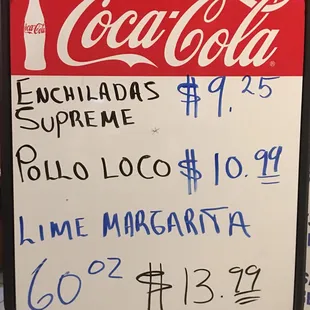 Coca-Cola
Coca-Cola
ENCHILADAS $9.25
SUPREME
POLLO LOCO $10.99
LIME MARGARITA
60 OZ $13.99